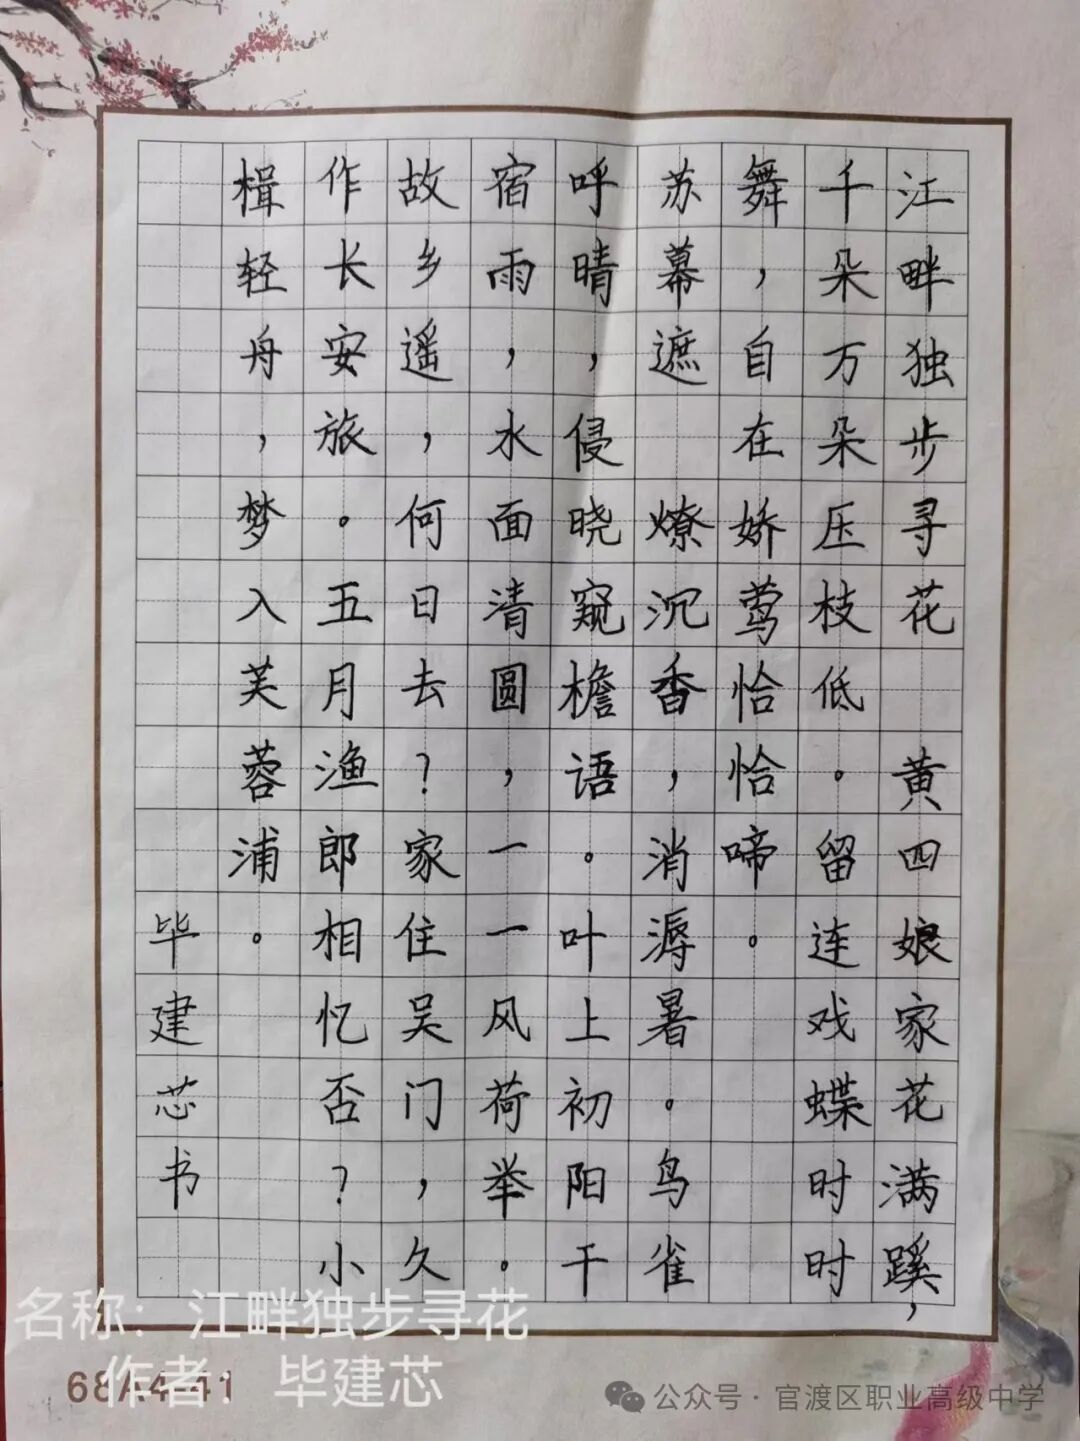 江畔独步寻花 黄四娘家花满蹊，
千朵万朵压枝低。留连戏蝶时时
舞，自在娇莺恰恰啼。
苏幕遮 燎沉香，消溽暑。鸟雀
呼晴，侵晓窥檐语。叶上初阳干
宿雨，水面清圆，一一风荷举。
故乡遥，何日去？家住吴门，久
作长安旅。五月渔郎相忆否？小
楫轻舟，梦入芙蓉浦。
毕建芯书
名称：江畔独步寻花
作者：毕建芯
公众号·官渡区职业高级中学